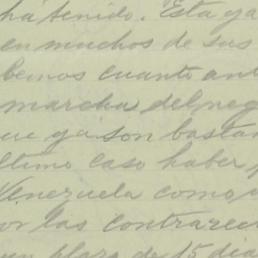 há tenido. Esta ya
en muchos de sus
bemos cuanto an
marcha del neg
ue ya son bastan
ltimo caso haber
Venezuela como
or las contrarec
un plazo de 15 dia